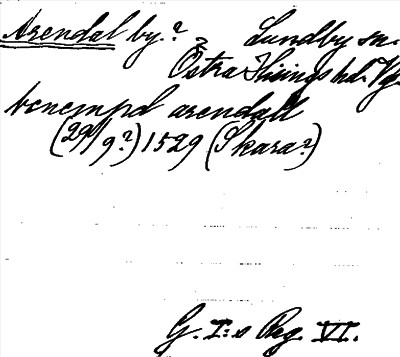 Arendal by.? Lundby sn.
Östra Hisings hd. Vg.
bencempd arendall
(29/9?) 1529 (Skara?)
G. I:s Reg. VI.